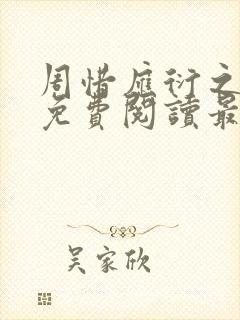 周惜雁衍之
免費閱讀最
吴家欣